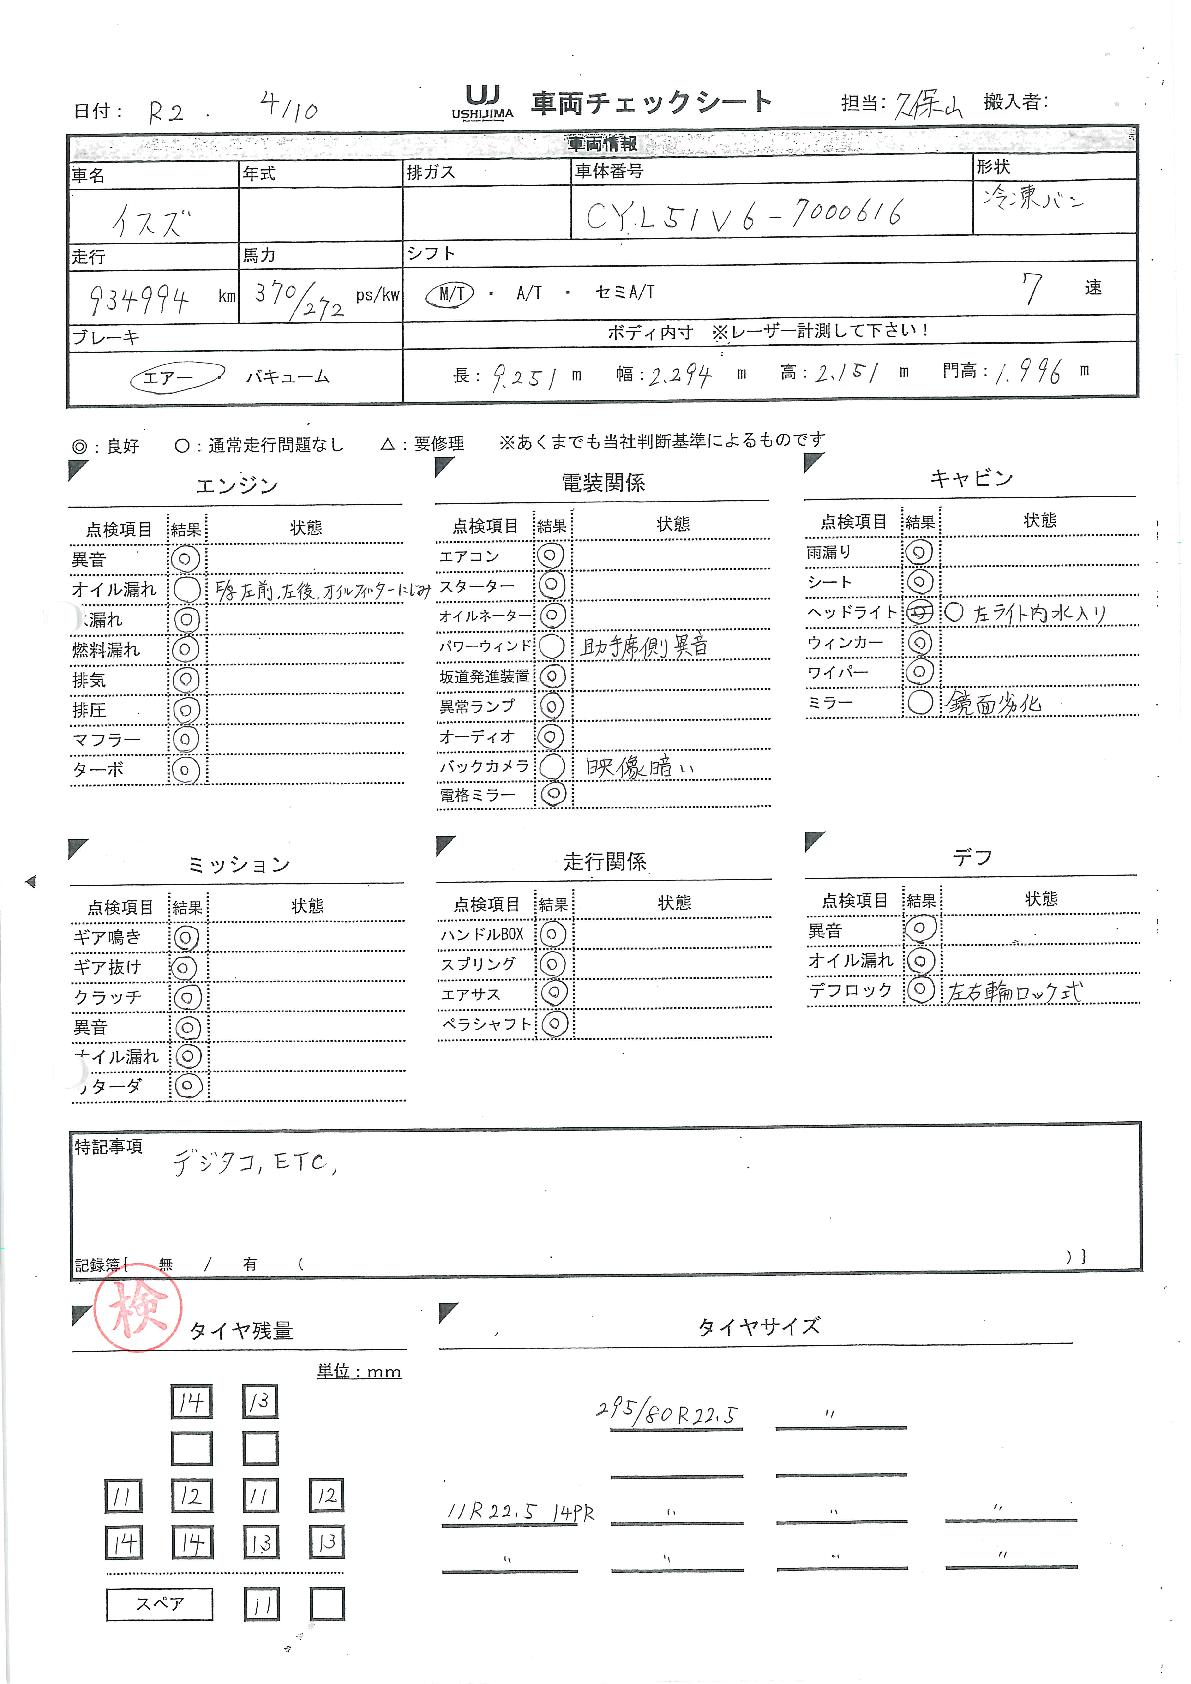 日付： R2. 4/10 UJ USHIJIMA 車両チェックシート 担当：久保山 搬入者：
車両情報
車名 年式 排ガス 車体番号 形状
イスズ CYL51V6-7000616 冷凍バン
走行 馬力 シフト
934994 km 370/272 ps/kw M/T ・ A/T ・ セミA/T 7 速
ブレーキ ボディ内寸 ※レーザー計測して下さい！
エアー ・ バキューム 長：9.251 m 幅：2.294 m 高：2.151 m 門高：1.996 m
◎：良好 ○：通常走行問題なし △：要修理 ※あくまでも当社判断基準によるものです
エンジン
点検項目 結果 状態
異音 ◎
オイル漏れ ○ 左前、左後、オイルフィルターにじみ
漏れ ◎
燃料漏れ ◎
排気 ◎
排圧 ◎
マフラー ◎
ターボ ◎
電装関係
点検項目 結果 状態
エアコン ◎
スターター ◎
オイルネーター ◎
パワーウィンド ○ 助手席側異音
坂道発進装置 ◎
異常ランプ ◎
オーディオ ◎
バックカメラ ○ 映像暗い
電格ミラー ◎
キャビン
点検項目 結果 状態
雨漏り ◎
シート ◎
ヘッドライト ○ 左ライト内水入り
ウィンカー ◎
ワイパー ◎
ミラー ○ 鏡面劣化
ミッション
点検項目 結果 状態
ギア鳴き ◎
ギア抜け ◎
クラッチ ◎
異音 ◎
イル漏れ ◎
ターダ ◎
走行関係
点検項目 結果 状態
ハンドルBOX ◎
スプリング ◎
エアサス ◎
ペラシャフト ◎
デフ
点検項目 結果 状態
異音 ◎
オイル漏れ ◎
デフロック ◎ 左右輪ロック式
特記事項 デジタコ, ETC,
記録簿[ 無 / 有 ( )]
検
タイヤ残量
単位：mm
14 13
11 12 11 12
14 14 13 13
スペア 11
タイヤサイズ
295/80R22.5 〃
11R22.5 14PR 〃 〃 〃
〃 〃 〃 〃